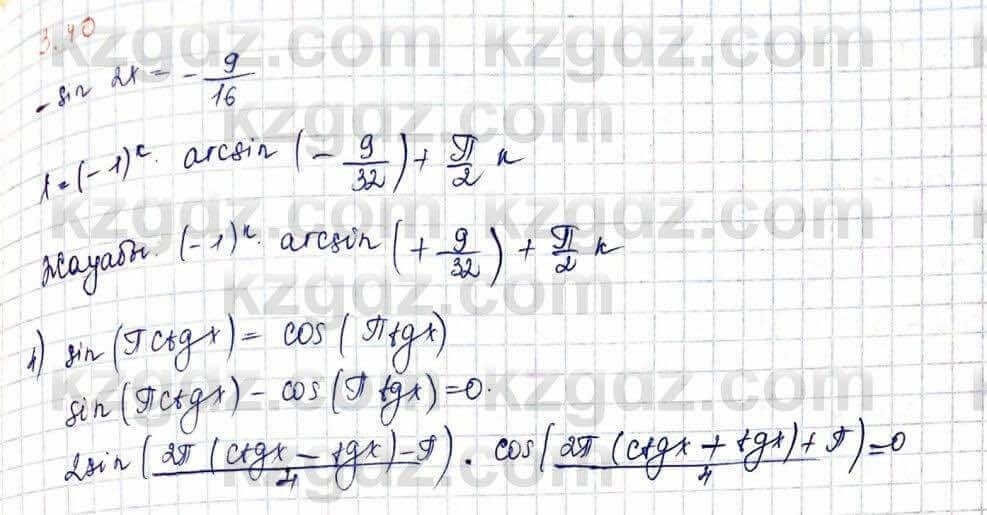 3.40
- sin 2x = - 9/16
x = (-1)^k · arcsin (- 9/32) + π/2 k
Жауабы. (-1)^k · arcsin (+ 9/32) + π/2 k
1) sin (π ctgx) = cos (π tgx)
sin (π ctgx) - cos (π tgx) = 0.
2sin (2π (ctgx - tgx) - π)/4 · cos (2π (ctgx + tgx) + π)/4 = 0
kzgdz.com kzgdz.com
kzgdz.com
kzgdz.com kzgdz.com
kzgdz.com
kzgdz.com kzgdz.com
kzgdz.com